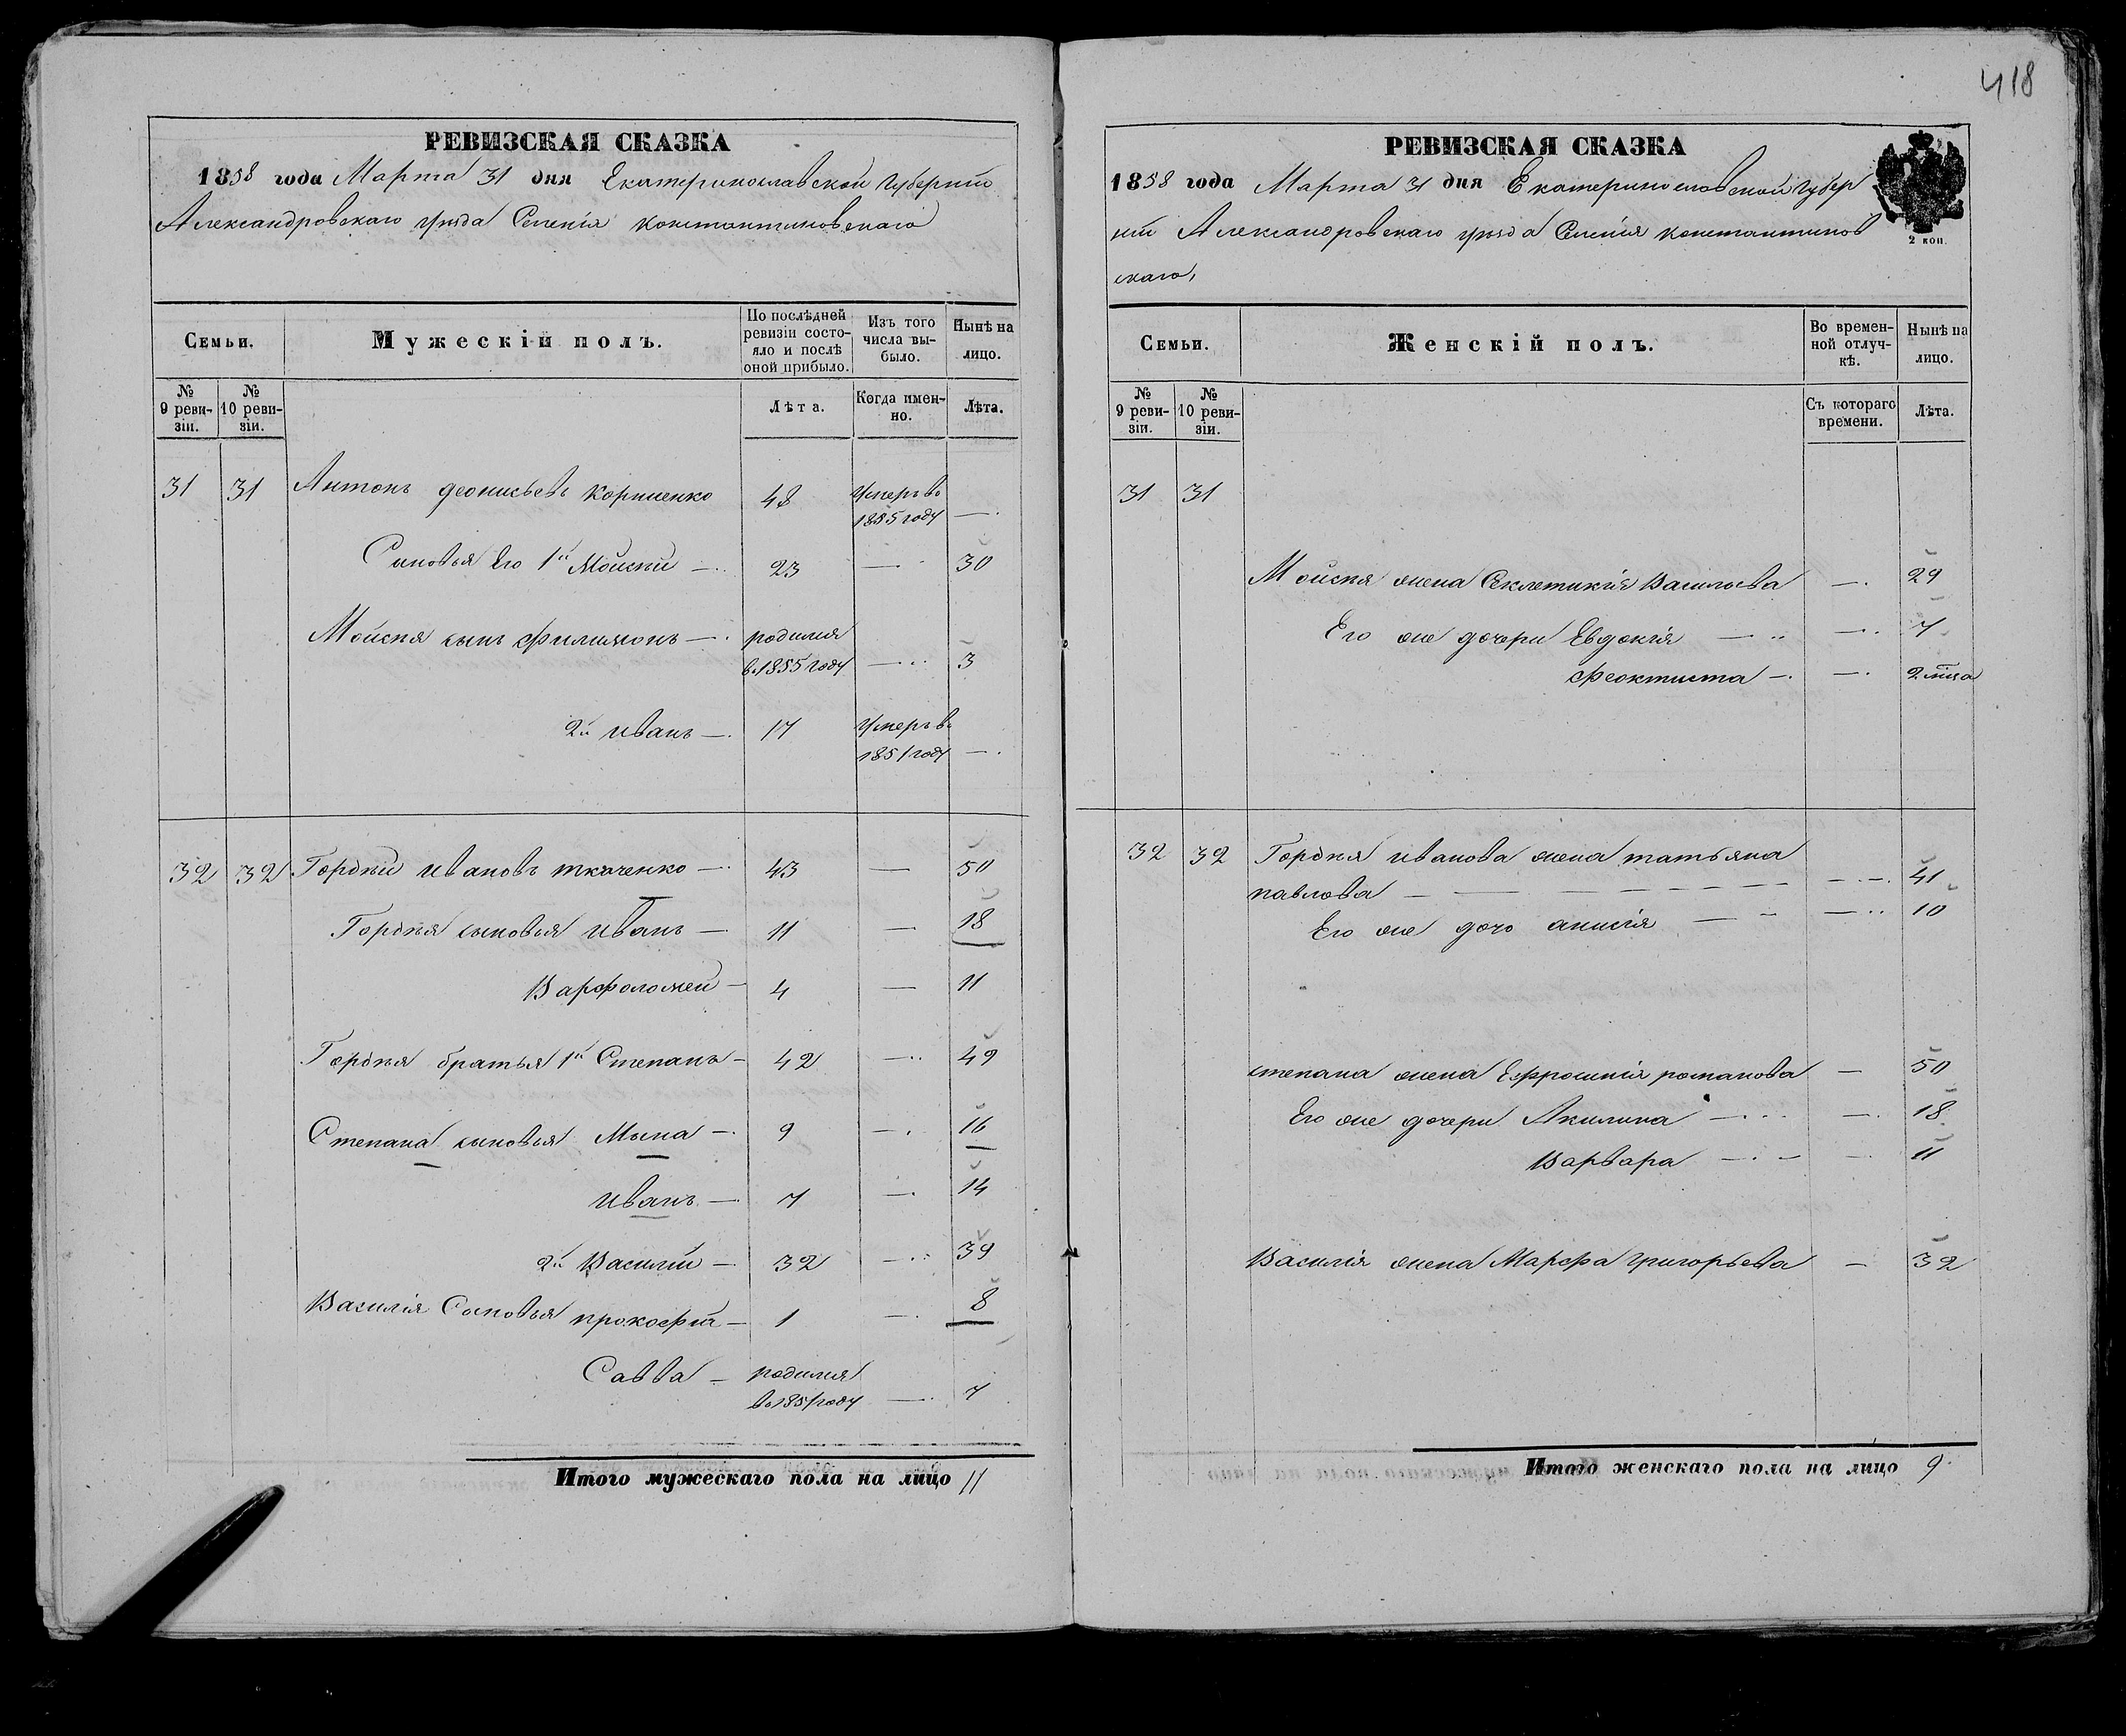 418
РЕВИЗСКАЯ СКАЗКА
1858 года Марта 31 дня Екатеринославской губернiи
Александровскаго уѣзда Селенiя константиновскаго
Семьи.
Мужескiй полъ.
По послѣдней ревизiи состояло и послѣ оной прибыло.
Изъ того числа выбыло.
Нынѣ на лицо.
№ 9 ревизiи.
№ 10 ревизiи.
Лѣта.
Когда именно.
Лѣта.
31 31 Антонъ деонисьевъ корниенко 48 Умеръ въ 1855 году —
Сыновья Его 1й Моисей — 23 — 30
Моисея сынъ Филимонъ — родился въ 1855 году — 3
2й иванъ — 17 Умеръ въ 1851 году —
32 32 Гордѣй ивановъ ткаченко — 43 — 50
Гордѣя сыновья иванъ — 11 — 18
Варфоломей — 4 — 11
Гордѣя братья 1й Степанъ — 42 — 49
Степана сыновья Мына — 9 — 16
иванъ — 7 — 14
2й Василiй — 32 — 39
Василiя Сыновья прокофiй — 1 — 8
Савва — родился въ 1851 году — 7
Итого мужескаго пола на лицо 11
РЕВИЗСКАЯ СКАЗКА
1858 года Марта 31 дня Екатеринославской губер
нiи Александровскаго уѣзда Селенiя константинов
скаго,
2 коп.
Семьи.
Женскiй полъ.
Во временной отлучкѣ.
Нынѣ на лицо.
№ 9 ревизiи.
№ 10 ревизiи.
Съ котораго времени.
Лѣта.
31 31
Мойсея жена Секлетикiя Васильева — 29
Его же дочери Евдокiя — — 7
Феоктиста — — 2 мѣсца
32 32 Гордѣя иванова жена татьяна
павлова — — 41
Его же дочь анисiя — — 10
степана жена Ефросинiя романова — 50
Его же дочери Акилина — — 18
Варвара — — 11
Василiя жена Марфа григорьева — 32
Итого женскаго пола на лицо 9